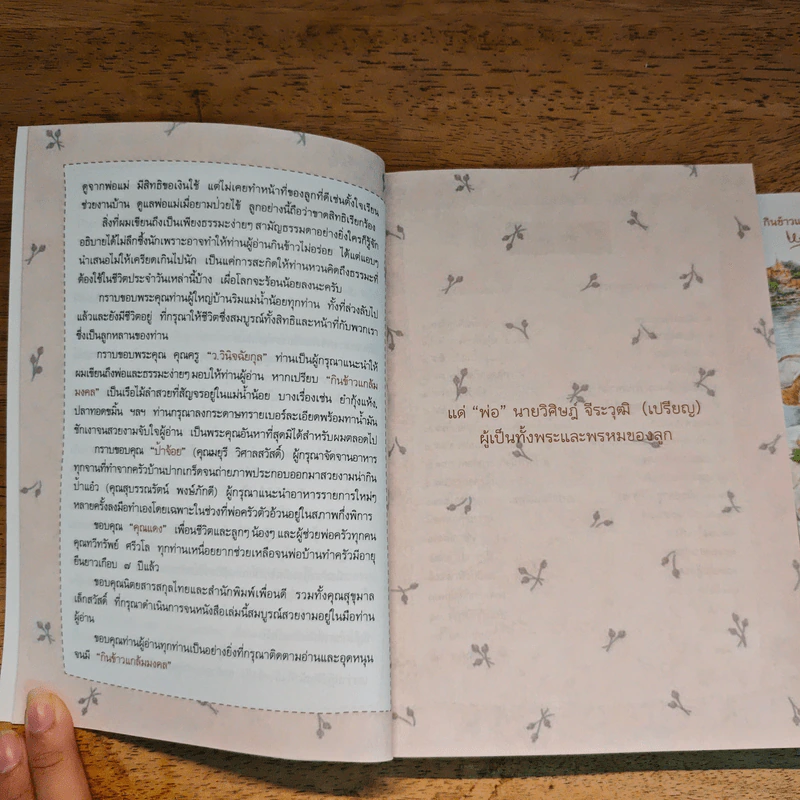 ดูจากพ่อแม่ มีสิทธิขอเงินใช้ แต่ไม่เคยทำหน้าที่ของลูกที่ดีเช่นตั้งใจเรียน
ช่วยงานบ้าน ดูแลพ่อแม่เมื่อยามป่วยไข้ ลูกอย่างนี้ถือว่าขาดสิทธิเรียกร้อง
สิ่งที่ผมเขียนถึงเป็นเพียงธรรมะง่ายๆ สามัญธรรมดาอย่างยิ่งใครก็รู้จัก
อธิบายได้ไม่ลึกซึ้งนักเพราะอาจทำให้ท่านผู้อ่านกินข้าวไม่อร่อย ได้แต่แอบๆ
นำเสนอไม่ให้เครียดเกินไปนัก เป็นแค่การสะกิดให้ท่านหวนคิดถึงธรรมะที่
ต้องใช้ในชีวิตประจำวันเหล่านี้บ้าง เผื่อโลกจะร้อนน้อยลงนะครับ
กราบขอบพระคุณท่านผู้ใหญ่บ้านริมแม่น้ำน้อยทุกท่าน ทั้งที่ล่วงลับไป
แล้วและยังมีชีวิตอยู่ ที่กรุณาให้ชีวิตซึ่งสมบูรณ์ทั้งสิทธิและหน้าที่กับพวกเรา
ซึ่งเป็นลูกหลานของท่าน
กราบขอบพระคุณ คุณครู “ว.วินิจฉัยกุล” ท่านเป็นผู้กรุณาแนะนำให้
ผมเขียนถึงพ่อและธรรมะง่ายๆ มอบให้ท่านผู้อ่าน หากเปรียบ “กินข้าวแกล้ม
มงคล” เป็นเรือไม้ลำสวยที่สัญจรอยู่ในแม่น้ำน้อย บางเรื่องเช่น ยำกุ้งแห้ง,
ปลาทอดขมิ้น ฯลฯ ท่านกรุณาลงกระดาษทรายเบอร์ละเอียดพร้อมทาน้ำมัน
ชักเงาจนสวยงามจับใจผู้อ่าน เป็นพระคุณอันหาที่สุดมิได้สำหรับผมตลอดไป
กราบขอบคุณ “ป้าจ้อย” (คุณมยุรี วิศาลสวัสดิ์) ผู้กรุณาจัดจานอาหาร
ทุกจานที่ทำจากครัวบ้านปากเกร็ดจนถ่ายภาพประกอบออกมาสวยงามน่ากิน
ป้าแอ๋ว (คุณสุบรรณรัตน์ พงษ์ภักดี) ผู้กรุณาแนะนำอาหารรายการใหม่ๆ
หลายครั้งลงมือทำเองโดยเฉพาะในช่วงที่พ่อครัวตัวอ้วนอยู่ในสภาพกึ่งพิการ
ขอบคุณ “คุณแดง” เพื่อนชีวิตและลูกๆ น้องๆ และผู้ช่วยพ่อครัวทุกคน
คุณทวีทรัพย์ ศรีวโล ทุกท่านเหนื่อยยากช่วยเหลือจนพ่อบ้านทำครัวมีอายุ
ยืนยาวเกือบ ๗ ปีแล้ว
ขอบคุณนิตยสารสกุลไทยและสำนักพิมพ์เพื่อนดี รวมทั้งคุณสุขุมาล
เล็กสวัสดิ์ ที่กรุณาดำเนินการจนหนังสือเล่มนี้สมบูรณ์สวยงามอยู่ในมือท่าน
ผู้อ่าน
ขอบคุณท่านผู้อ่านทุกท่านเป็นอย่างยิ่งที่กรุณาติดตามอ่านและอุดหนุน
จนมี “กินข้าวแกล้มมงคล”
แด่ “พ่อ” นายวิศิษฎ์ จีระวุฒิ (เปรียญ)
ผู้เป็นทั้งพระและพรหมของลูก